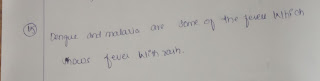 (15) Dengue and malaria are some of the fever which
shows fever with rash.